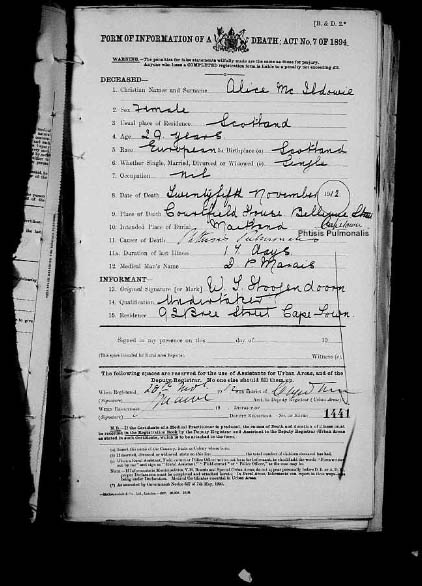 [B. & D. 2.*
FORM OF INFORMATION OF A DEATH; ACT No. 7 OF 1894.
WARNING.—The penalties for false statements wilfully made are the same as those for perjury.
Anyone who loses a COMPLETED registration form is liable to a penalty not exceeding £2.
DECEASED—
1. Christian Names and Surname Alice Mc Ildowie
2. Sex Female
3. Usual place of Residence Scotland
4. Age 29 years
5. Race European Birthplace (a) Scotland
6. Whether Single, Married, Divorced or Widowed (b) Single
7. Occupation nil
8. Date of Death Twentyfifth November 1912
9. Place of Death Courtfield House Bellevue Stree
Cape Town
10. Intended Place of Burial Maitland
Phtisis Pulmonalis
11. Causes of Death Phtisis Pulmonalis
11A. Duration of last Illness 17 days
12. Medical Man's Name D P Marais
INFORMANT—
13. Original Signature (or Mark) W. S. Hoogendoorn
14. Qualification Undertaker
15. Residence 92 Bree Street Cape Town
Signed in my presence on this day of 19
Witness (c)
The following spaces are reserved for the use of Assistants for Urban Areas, and of the
Deputy Registrar. No one else should fill them up.
When Registered 26th Nov 1912 District of Cape Town
(Signature) Asst. to Deputy Registrar (Urban Area)
WHEN REGISTERED 19 DISTRICT OF
(Signature) DEPUTY REGISTRAR No. in Series 1441
N.B.—If the Certificate of a Medical Practitioner is produced, the causes of Death and duration of illness must
be entered in the Registration Book by the Deputy Registrar and Assistant to the Deputy Registrar Urban Areas
as stated in such Certificate, which is to be attached to the form.